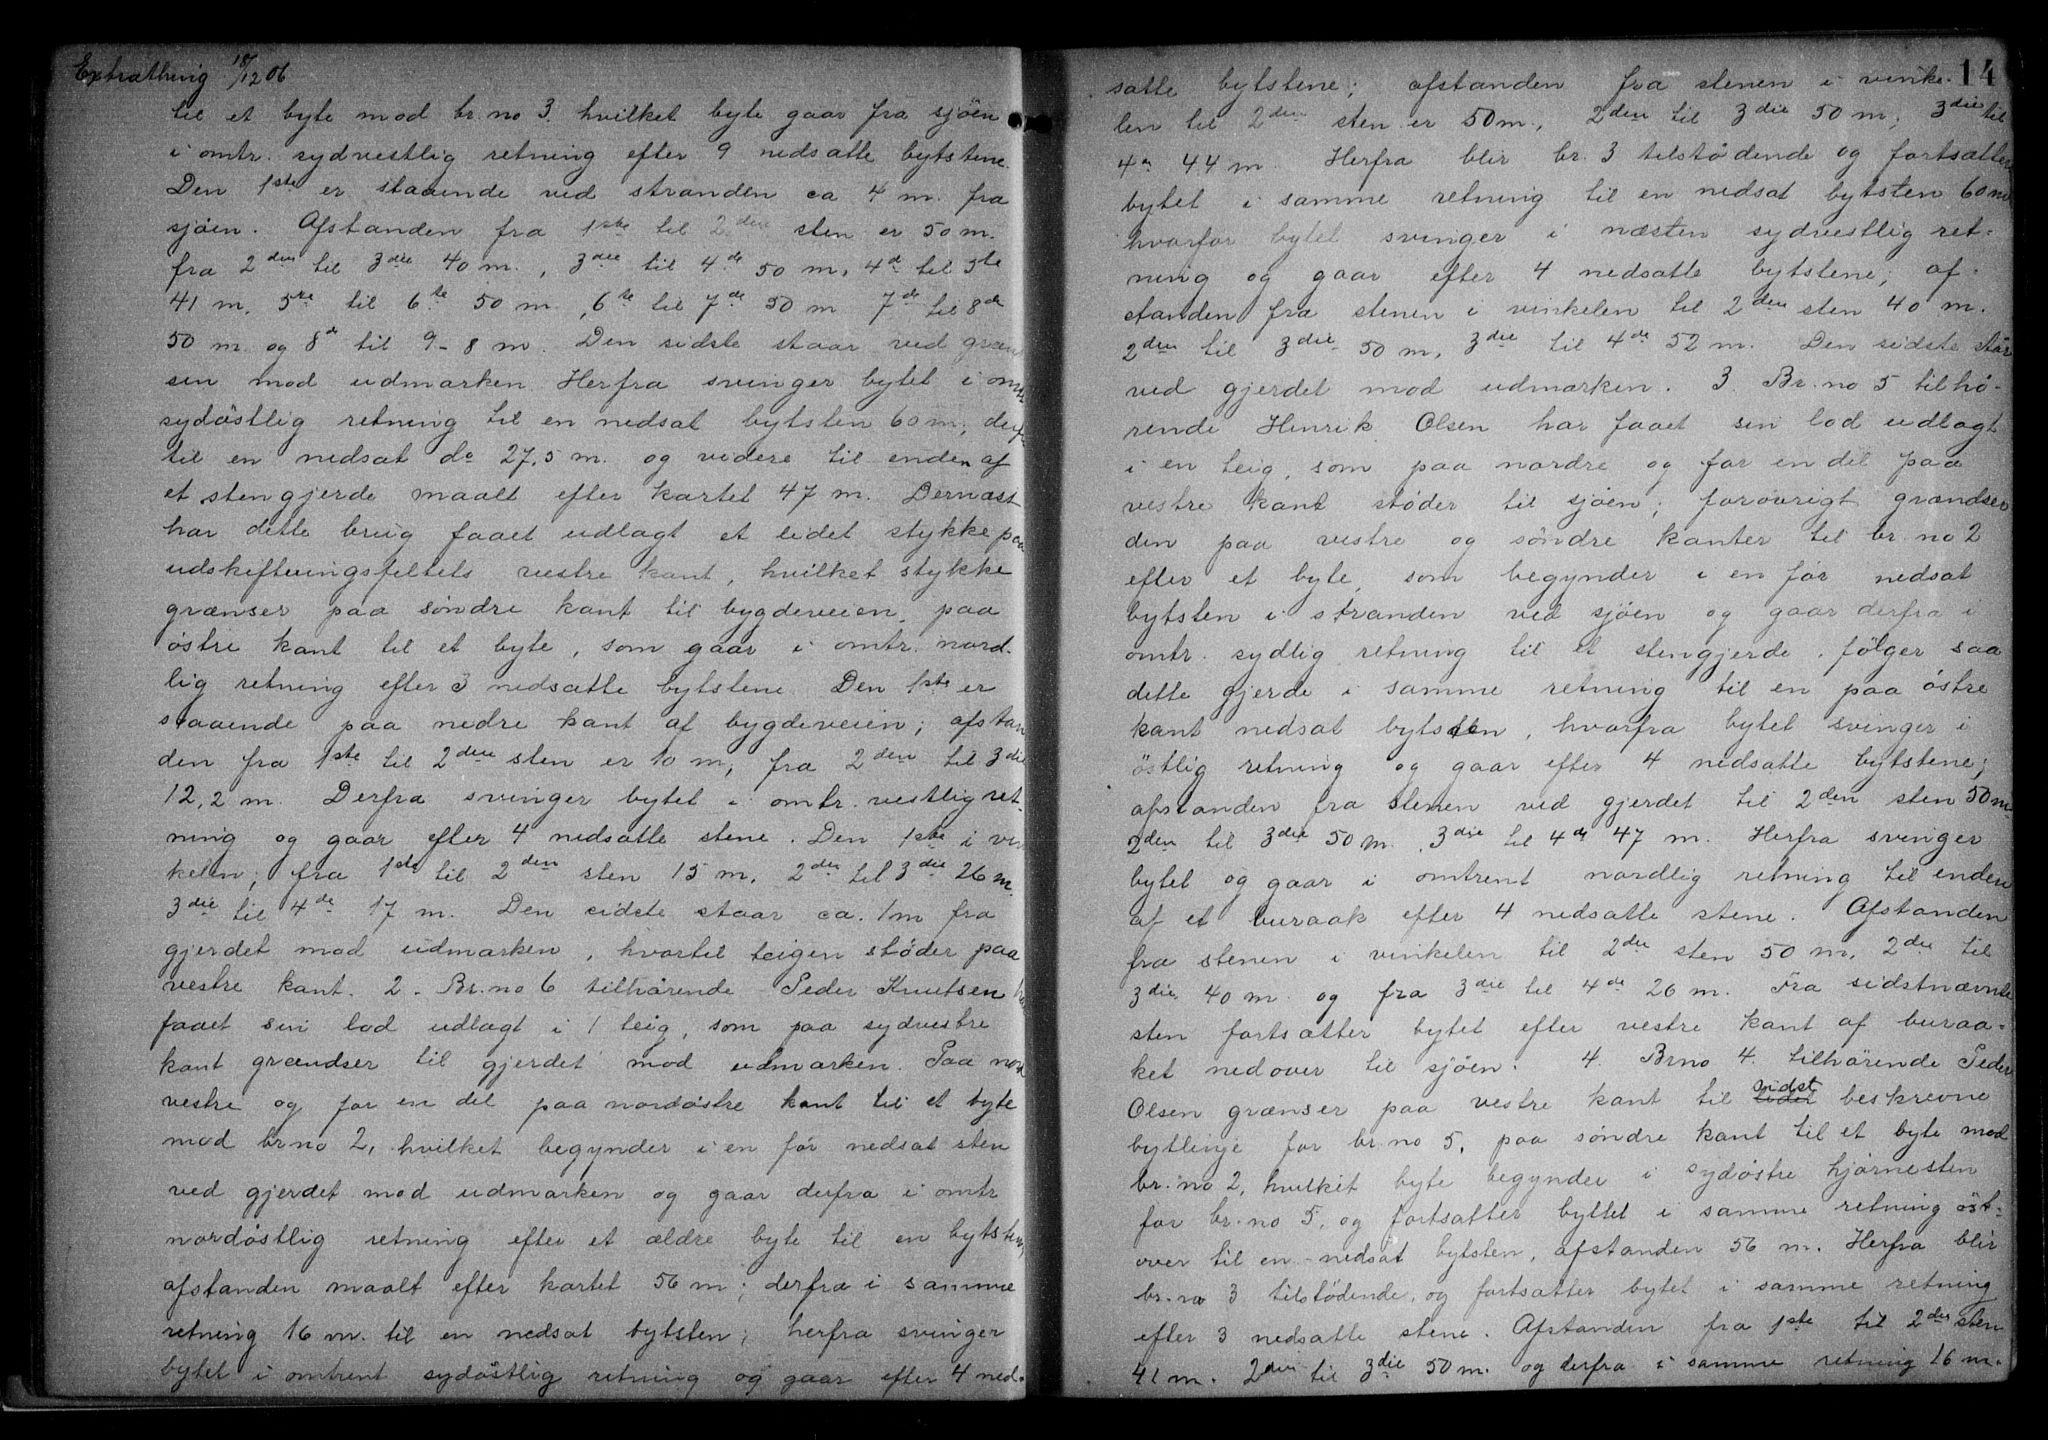 Extrathing 18/12 06
til et byte mod br.no 3. hvilket byte gaar fra sjöen
i omtr. sydvestlig retning efter 9 nedsatte bytstene.
Den 1ste er staaende ved stranden ca 4 m. fra
sjöen. Afstanden fra 1ste til 2den sten er 50 m.
fra 2den til 3die 40 m., 3die til 4de 50 m, 4d til 5te
41 m, 5te til 6te 50 m, 6te til 7de 50 m 7de til 8de
50 m og 8d til 9- 8 m. Den sidste staar ved græn
sen mod udmarken. Herfra svinger bytet i omtr.
sydöstlig retning til en nedsat bytsten 60 m, derfra
til en nedsat do 27,5 m. og videre til enden af
et stengjerde maalt efter kartet 47 m. Dernæst
har dette brug faaet udlagt et lidet stykke paa
udskiftningsfeltets vestre kant, hvilket stykke
grænser paa söndre kant til bygdeveien, paa
östre kant til et byte, som gaar i omtr. nord-
lig retning efter 3 nedsatte bytstene. Den 1ste er
staaende paa nedre kant af bygdeveien; afstan
den fra 1ste til 2den sten er 10 m; fra 2den til 3die
12,2 m. Derfra svinger bytet i omtr. vestlig ret-
ning og gaar efter 4 nedsatte stene. Den 1ste i vin
kelen; fra 1ste til 2den sten 15 m, 2den til 3die 26 m.
3die til 4de 17 m. Den sidste staar ca. 1m fra
gjerdet mod udmarken, hvortil teigen støder paa
vestre kant. 2. Br.no 6 tilhörende Peder Knutsen har
faaet sin lod udlagt i 1 teig, som paa sydvestre
kant grændser til gjerdet mod udmarken. Paa nord
vestre og for en del paa nordöstre kant til et byte
mod br.no 2, hvilket begynder i en för nedsat sten
ved gjerdet mod udmarken og gaar derfra i omtr
nordöstlig retning efter et ældre byte til en bytsten,
afstanden maalt efter kartet 56 m; derfra i samme
retning 16 m. til en nedsat bytsten; herfra svinger
bytet i omtrent sydöstlig retning og gaar efter 4 ned-
14
satte bytstene; afstanden fra stenen i vinke-
len til 2den sten er 50 m., 2den til 3die 50 m; 3die til
4de 44 m. Herfra blir br. 3 tilstødende og fortsætter
bytet i samme retning til en nedsat bytsten 60 m
hvorfor bytet svinger i næsten sydvestlig ret-
ning og gaar efter 4 nedsatte bytstene; af-
standen fra stenen i vinkelen til 2den sten 40 m.
2den til 3die 50 m, 3die til 4de 52 m. Den sidste står
ved gjerdet mod udmarken. 3. Br.no 5 tilhö-
rende Henrik Olsen har faaet sin lod udlagt
i en teig, som paa nordre og for en del paa
vestre kant støder til sjöen; forövrigt grændser
den paa vestre og söndre kanter til br.no 2
efter et byte, som begynder i en för nedsat
bytsten i stranden ved sjöen og gaar derfra i
omtr. sydlig retning til et stengjerde, fölger saa
dette gjerde i samme retning til en paa östre
kant nedsat bytsten, hvorfra bytet svinger i
östlig retning og gaar efter 4 nedsatte bytstene;
afstanden fra stenen ved gjerdet til 2den sten 50 m
2den til 3die 50 m, 3die til 4de 47 m. Herfra svinger
bytet og gaar i omtrent nordlig retning til enden
af et buraak efter 4 nedsatte stene. Afstanden
fra stenen i vinkelen til 2den sten 50 m, 2den til
3die 40 m. og fra 3die til 4de 26 m. Fra sidstnævnte
sten fortsætter bytet efter vestre kant af buraa-
ket nedover til sjöen. 4. Brno 4. tilhörende Peder
Olsen grænser paa vestre kant til sidst beskrevne
bytlinje for br.no 5, paa söndre kant til et byte mod
br.no 2, hvilket byte begynder i sydöstre hjörnesten
for br.no 5, og fortsætter byttet i samme retning öst-
over til en nedsat bytsten, afstanden 56 m. Herfra blir
br.no 3 tilstödende, og fortsætter bytet i samme retning
efter 3 nedsatte stene. Afstanden fra 1ste til 2den sten
41 m. 2den til 3die 50 m. og derfra i samme retning 16 m.